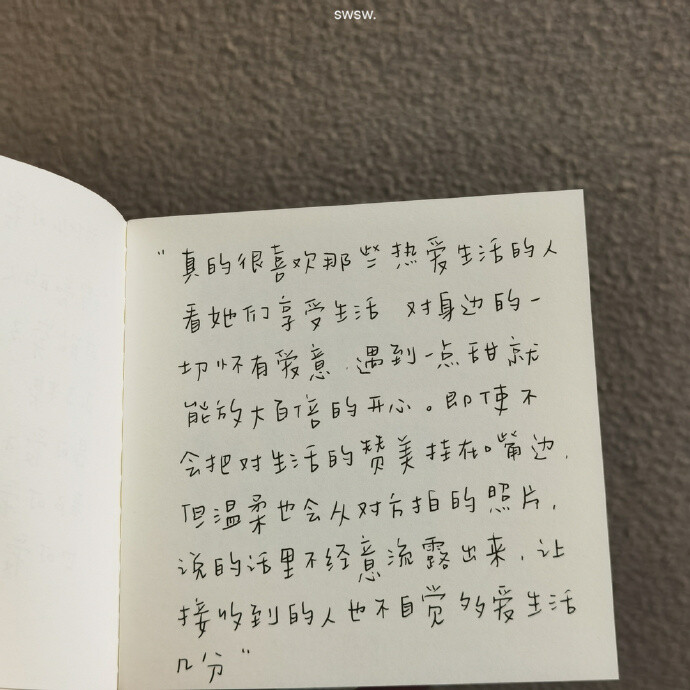 swsw.
“真的很喜欢那些热爱生活的人
看她们享受生活 对身边的一
切怀有爱意.遇到一点甜就
能放大百倍的开心。即使不
会把对生活的赞美挂在嘴边.
但温柔也会从对方拍的照片,
说的话里不经意流露出来,让
接收到的人也不自觉多爱生活
几分”